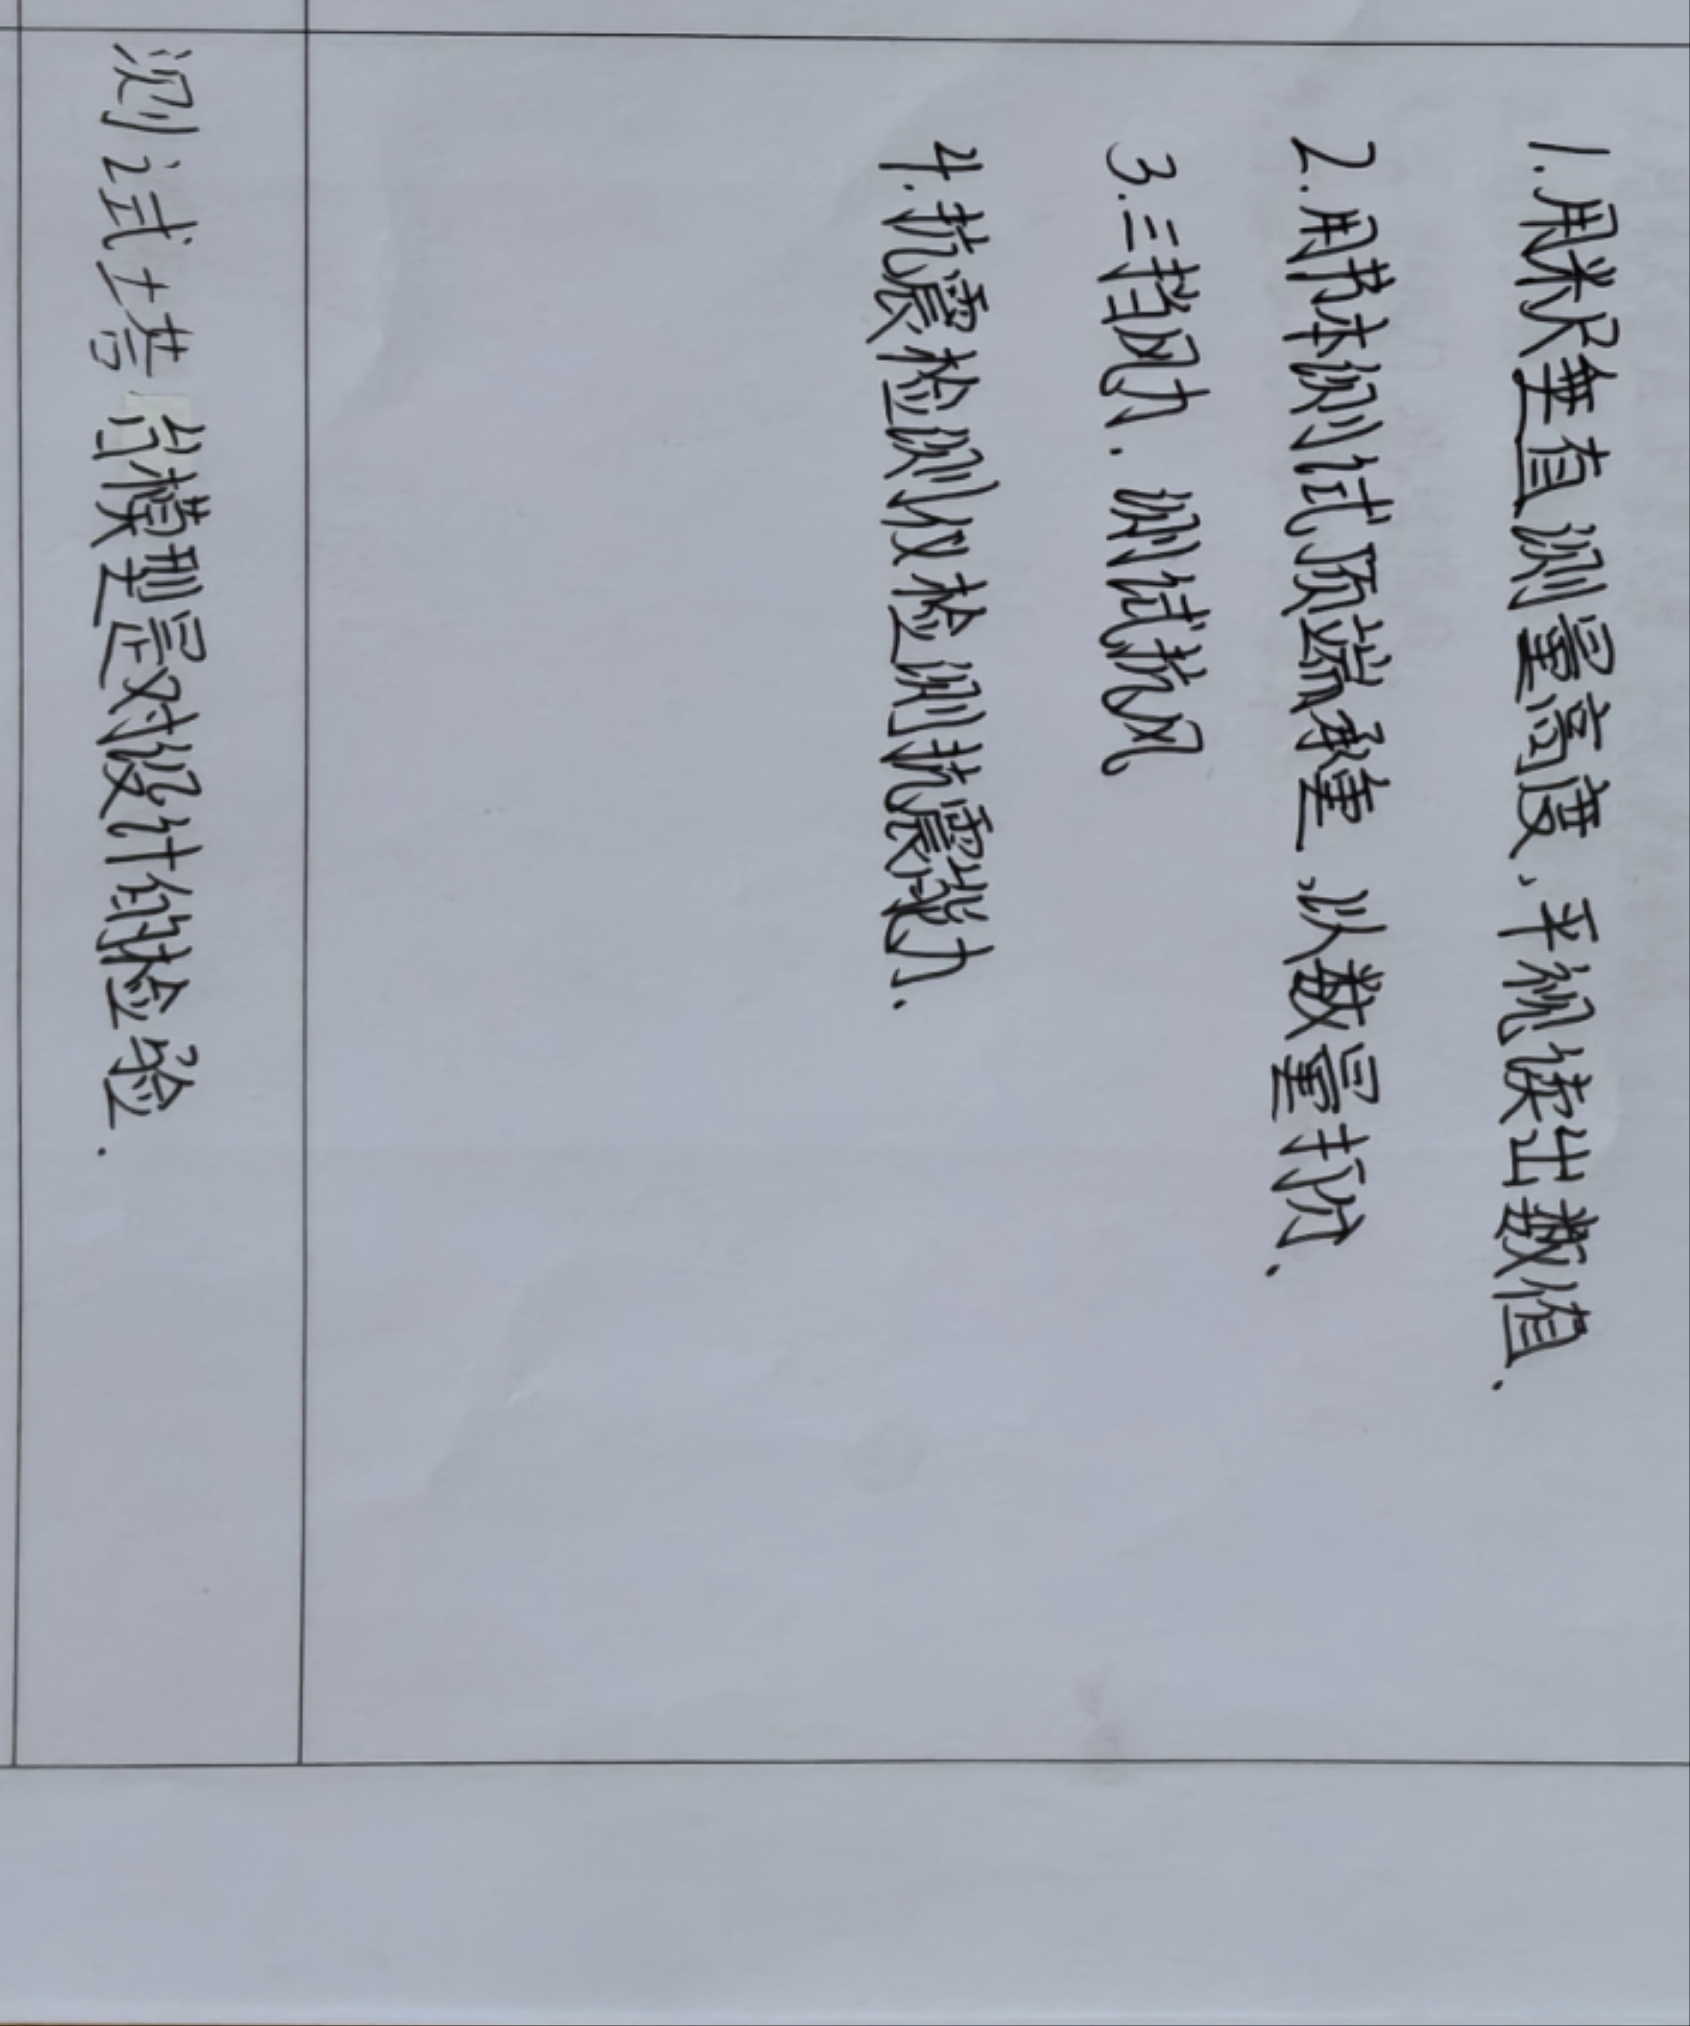 1.用米尺垂直测量高度,平视读出数值.
2.用书本测试顶端承重,以数量打分.
3.三挡风力.测试抗风
4.抗震检测仪检测抗震能力.
测试塔的模型是对设计的检验.